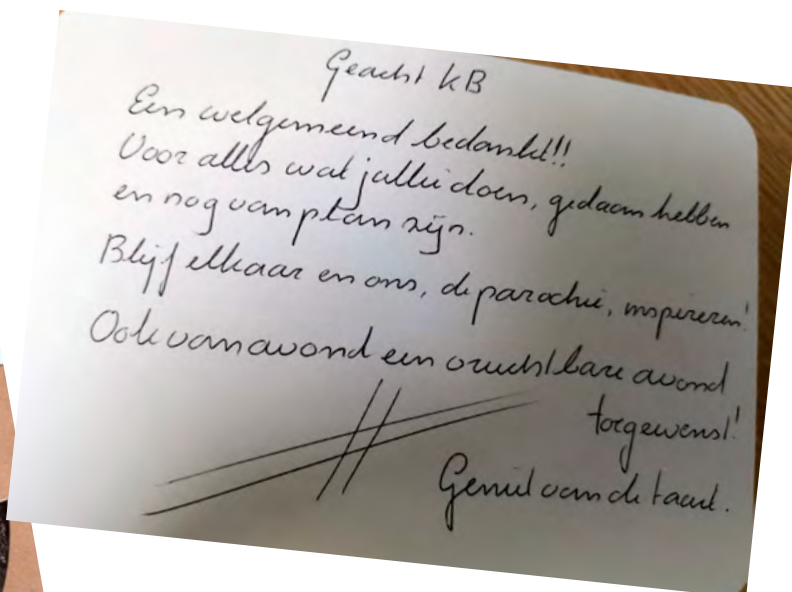 Geacht KB
Een welgemeend bedankt!!
Voor alles wat jullie doen, gedaan hebben
en nog van plan zijn.
Blijf elkaar en ons, de parochie, inspireren!
Ook vanavond een vruchtbare avond
toegewenst!
Geniet van de taart.